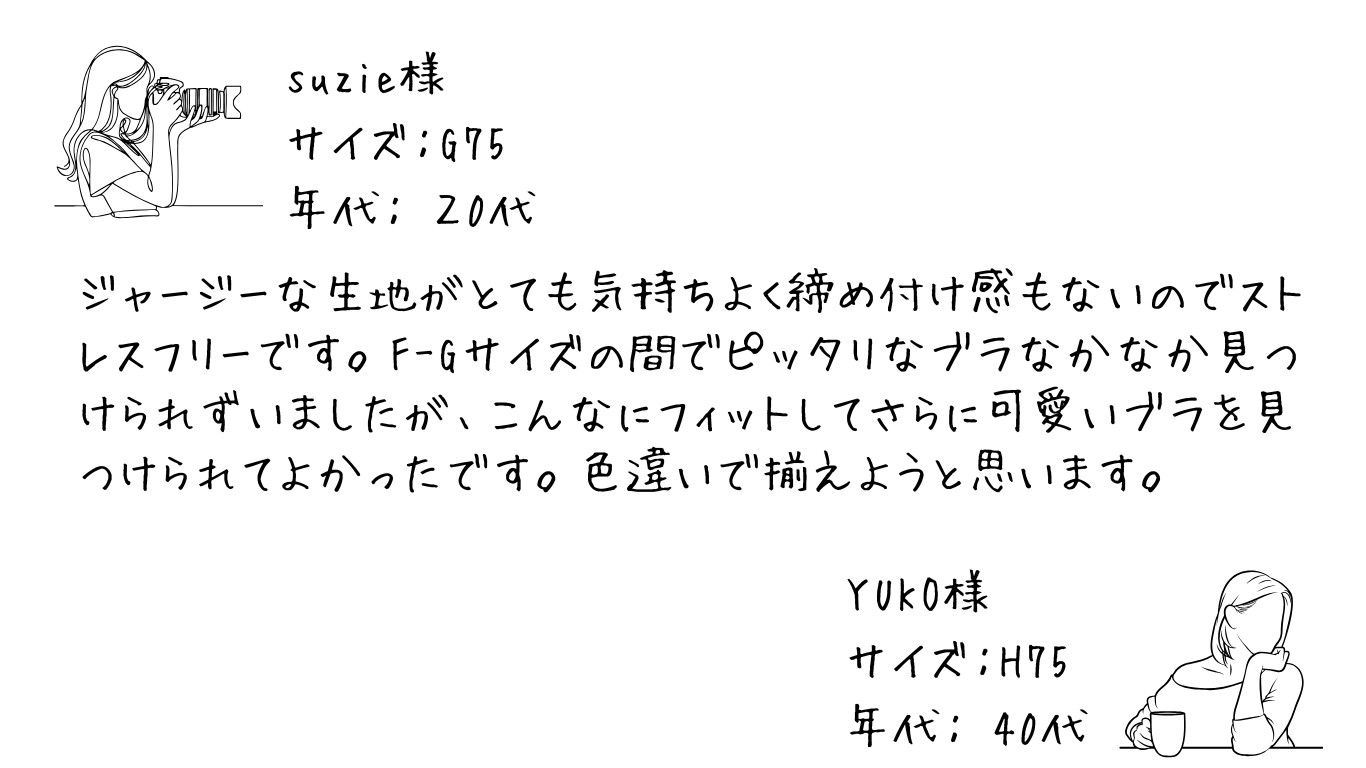 suzie様
サイズ;G75
年代; 20代
ジャージーな生地がとても気持ちよく締め付け感もないのでスト
レスフリーです。F-Gサイズの間でピッタリなブラなかなか見つ
けられずいましたが、こんなにフィットしてさらに可愛いブラを見
つけられてよかったです。色違いで揃えようと思います。
YUKO様
サイズ;H75
年代; 40代